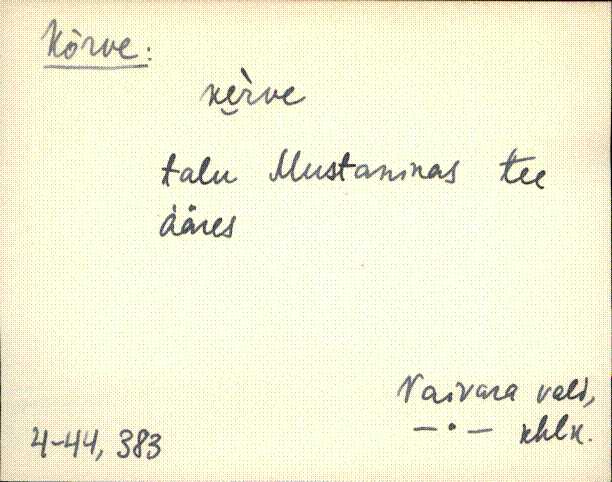 Kõrve:
ke̮rve
talu Mustaninas tee
ääres
Vaivara vald,
— • — khlk.
4-44, 383